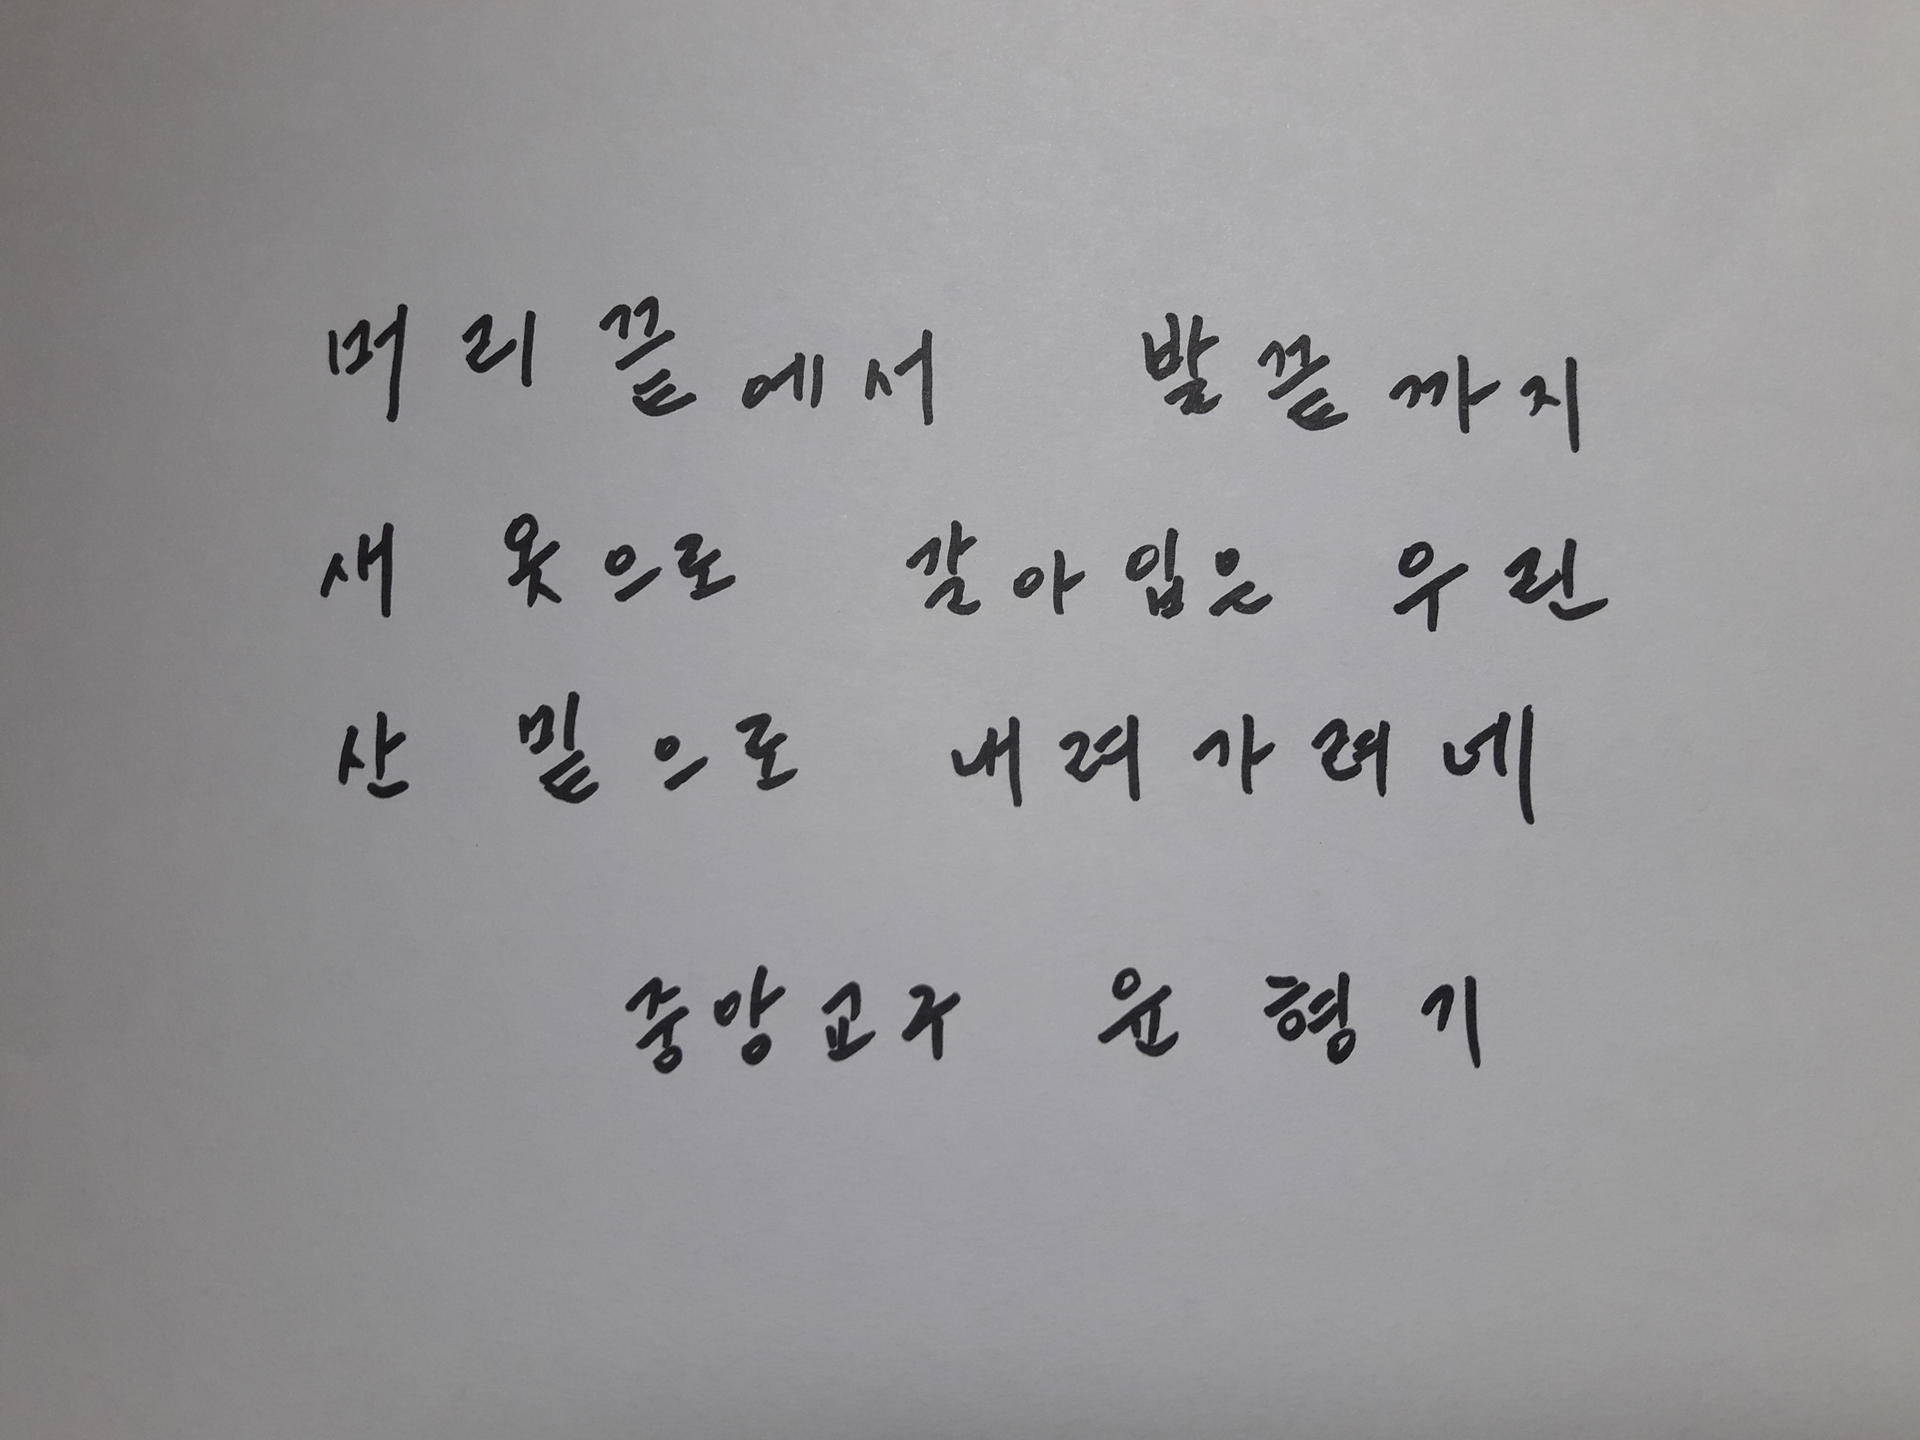 머리끝에서 발끝까지
새 옷으로 갈아입은 우린
산 밑으로 내려가려네
중앙교구 윤형기